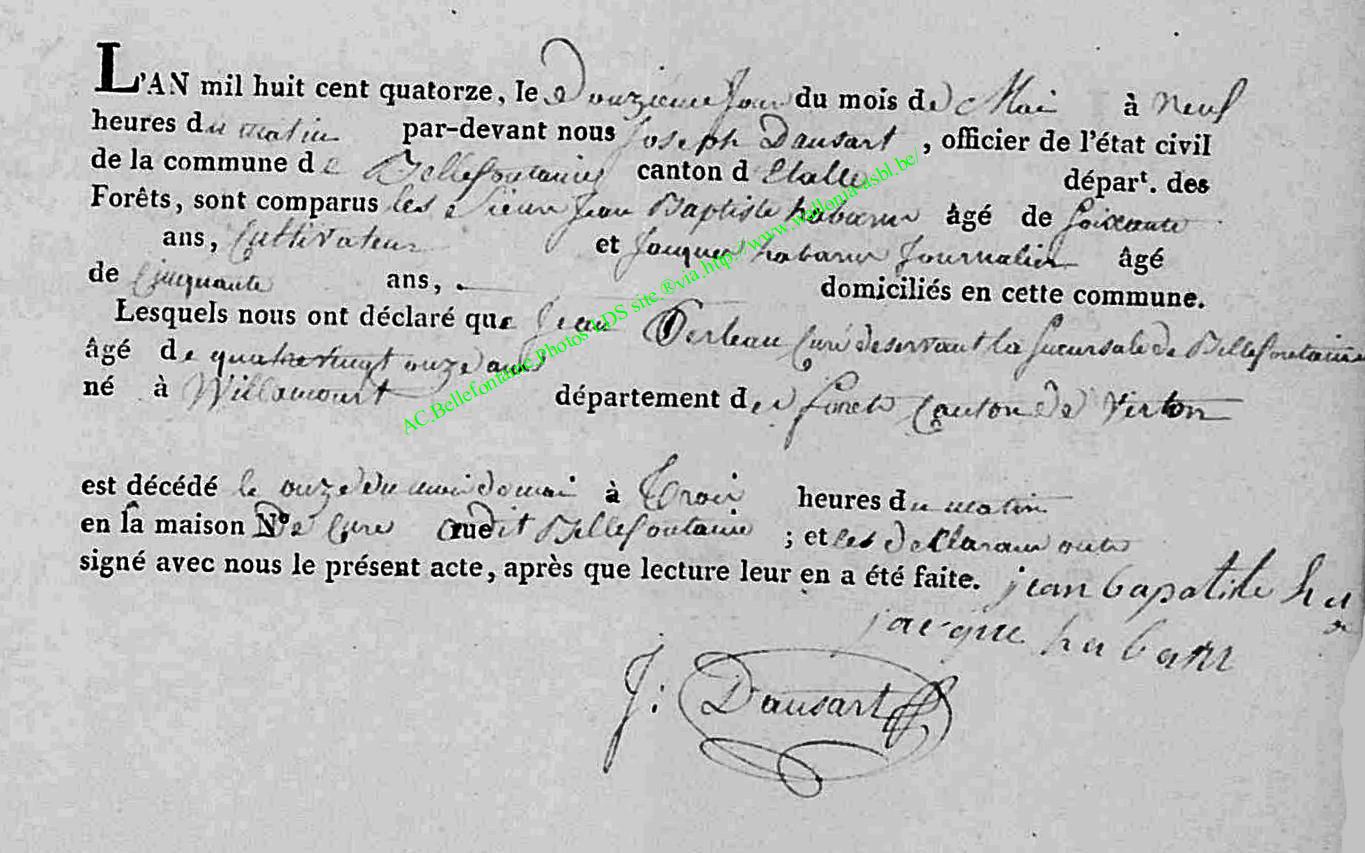 L'AN mil huit cent quatorze, le Douzieme Jour du mois de Mai à neuf
heures du matin par-devant nous Joseph Dausart, officier de l'état civil
de la commune de Bellefontaine canton d'Etalle départ. des
Forêts, sont comparus les Sieurs Jean Baptiste habaru âgé de soixante
ans, Cultivateur et Jacques habaru Journalier âgé
de Cinquante ans, domiciliés en cette commune.
Lesquels nous ont déclaré que Jean Perleau Curé deservant la sucursale de Bellefontaine
âgé de quatrevingt onze ans
né à Willancourt département des forets Canton de Virton
est décédé le onze du moi de mai à Trois heures du matin
en la maison de Cure rue dit Bellefontaine ; et les declarans ont
signé avec nous le présent acte, après que lecture leur en a été faite. jean bapatiste
jacque habaru
J: Dausart
AC.Bellefontaine.Photos LDS site.®via.http://www.wallonia-asbl.be/